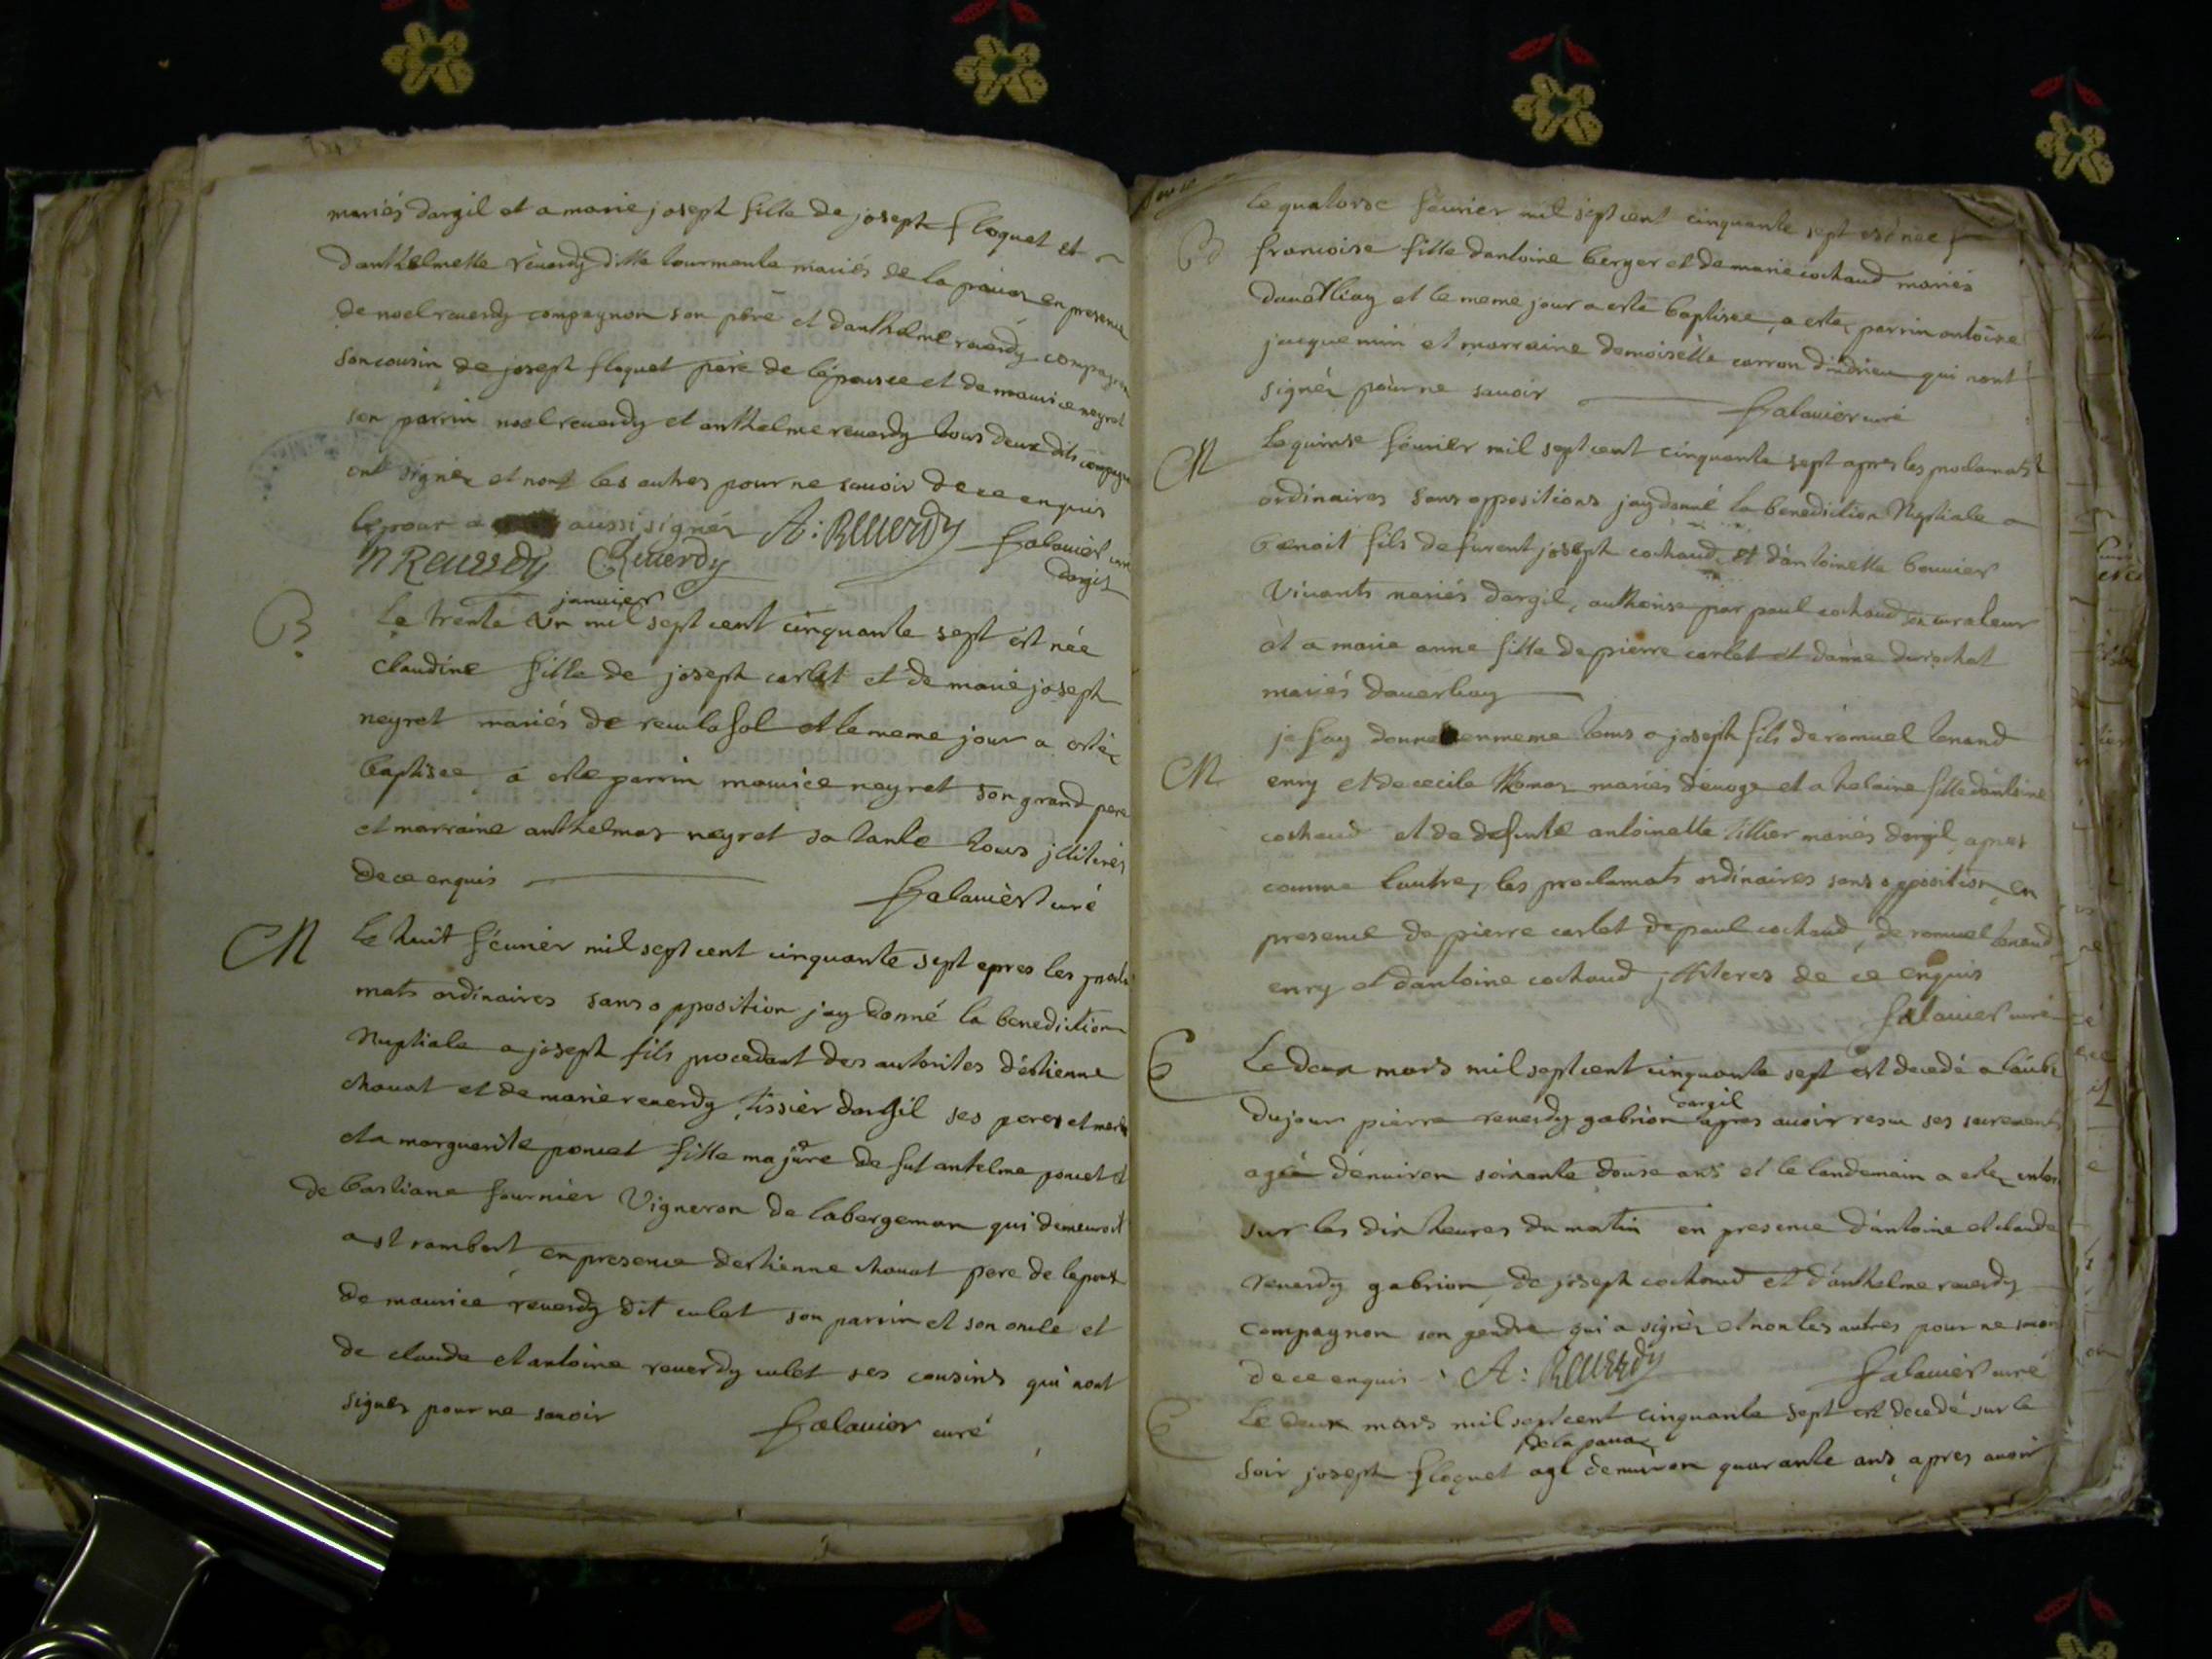 mariés dargil et a marie joseph fille de joseph floquet et
danthelmette reverdy ditte tourmente mariés de la pavaz en presence
de noel reverdy compagnon son père et danthelme reverdy compagnon
son cousin de joseph floquet père de lépousee et de maurice neyret
son parrin noel reverdy et anthelme reverdy tous deux dits compagnon
ont signéz et nont les autres pour ne savoir de ce enquis
lepoux a aussi signéz A: Reverdy Galavier curé
N Reverdy C Reverdy dargil
janvier
B Le trente un mil sept cent cinquante sept est née
claudine fille de joseph carlet et de marie joseph
neyret mariés de et le meme jour a estéz
baptisee a esté parrin maurice neyret son grand pere
et marraine anthelmaz neyret sa tante tous illiterés
de ce enquis Galavier curé
M Le huit février mil sept cent cinquante sept apres les procla
mats ordinaires sans opposition jay donné la benediction
Nuptiale a joseph fils procedant des autorites d'étienne
chavat et de marie reverdy tissier dargil ses peres et mere
et a marguerite poncet fille majure de fut antelme poncet et
de bastiane fournier Vigneron de labergeman qui demeuroit
a st rambert en presence destienne chavat pere de lepoux
de maurice reverdy dit culet son parrin et son oncle et
de claude et antoine reverdy culet ses cousins qui nont
signés pour ne savoir Galavier curé
le quatorse février mil sept cent cinquante sept est née
B francoise fille dantoine berger et de marie cochaud mariés
davertliay et le meme jour a esté baptisee, a estez parrin antoine
jacquemin et marraine demoiselle carron dindrieu qui nont
signéz pour ne savoir Galavier curé
M Le quinse février mil sept cent cinquante sept apres les proclamats
ordinaires sans oppositions jay donné la benediction Nuptiale a
benoit fils de furent joseph cochaud et d'antoinette bouvier
Vivants mariés dargil, authorise par paul cochaud son curateur
et a marie anne fille de pierre carlet et danne durochat
mariés daverliay
je lay donnee en meme tems a joseph fils de romuel tenand
M enry et de cecile Thomaz mariés dévoge et a helaine fille dantoine
cochaud et de defunte antoinette tillier mariés dargil apres
comme lautre, les proclamats ordinaires sans opposition, en
presence de pierre carlet de paul cochaud, de romuel tenand
enry et dantoine cochaud illiteres de ce enquis
Galavier curé
E Le deux mars mil sept cent cinquante sept est decedé a l'aube
dargil
du jour pierre reverdy gabrion apres avoir resu ses sacrements
agé d'environ soixante douse ans et le landemain a estéz enter
sur les dix heures du matin en presence d'antoine et claude
reverdy gabrion, de joseph cochaud et d'anthelme reverdy
compagnon son gendre qui a signéz et non les autres pour ne savoir
de ce enquis A: Reverdy Galavier curé
E Le deux mars mil sept cent cinquante sept est decedé sur le
de la pavaz
soir joseph floquet agé denviron quarante ans apres avoir